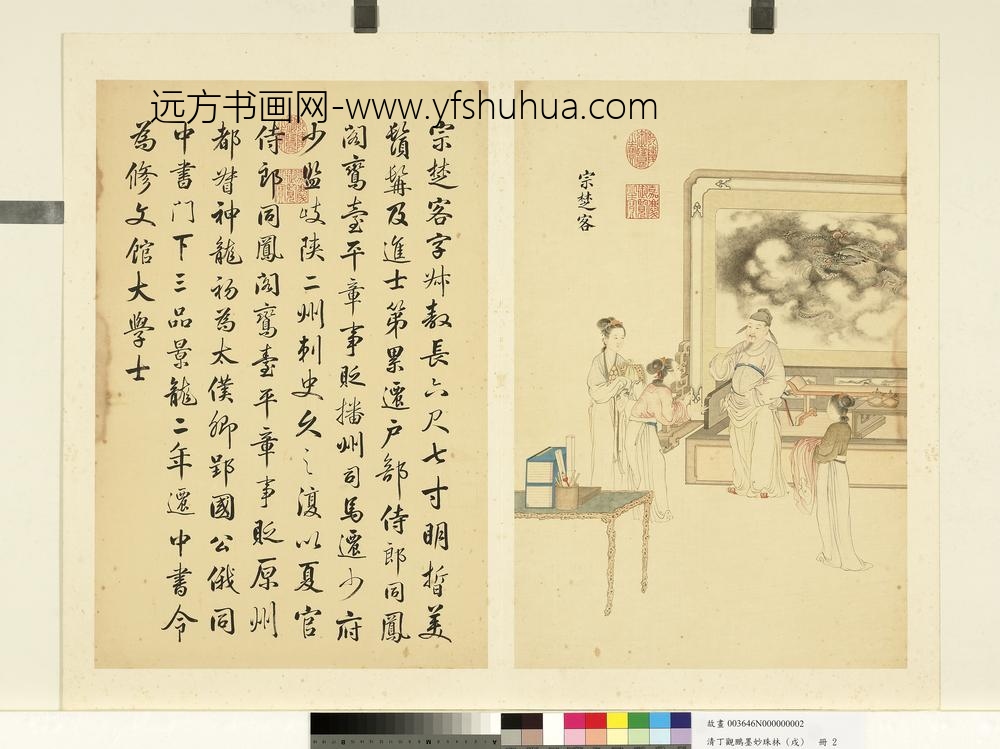 远方书画网-www.yfshuhua.com
宗楚客
宗楚客字叔敖長六尺七寸明皙美
鬚髯及進士第累遷户部侍郎同鳳
閣鸞臺平章事貶播州司馬遷少府
少監岐陝二州刺史久之復以夏官
侍郎同鳳閣鸞臺平章事貶原州
都督神龍初為太僕卿郢國公俄同
中書門下三品景龍二年遷中書令
為修文館大學士
故畫 003646N000000002
清丁觀鵬墨妙珠林（戌） 冊 2